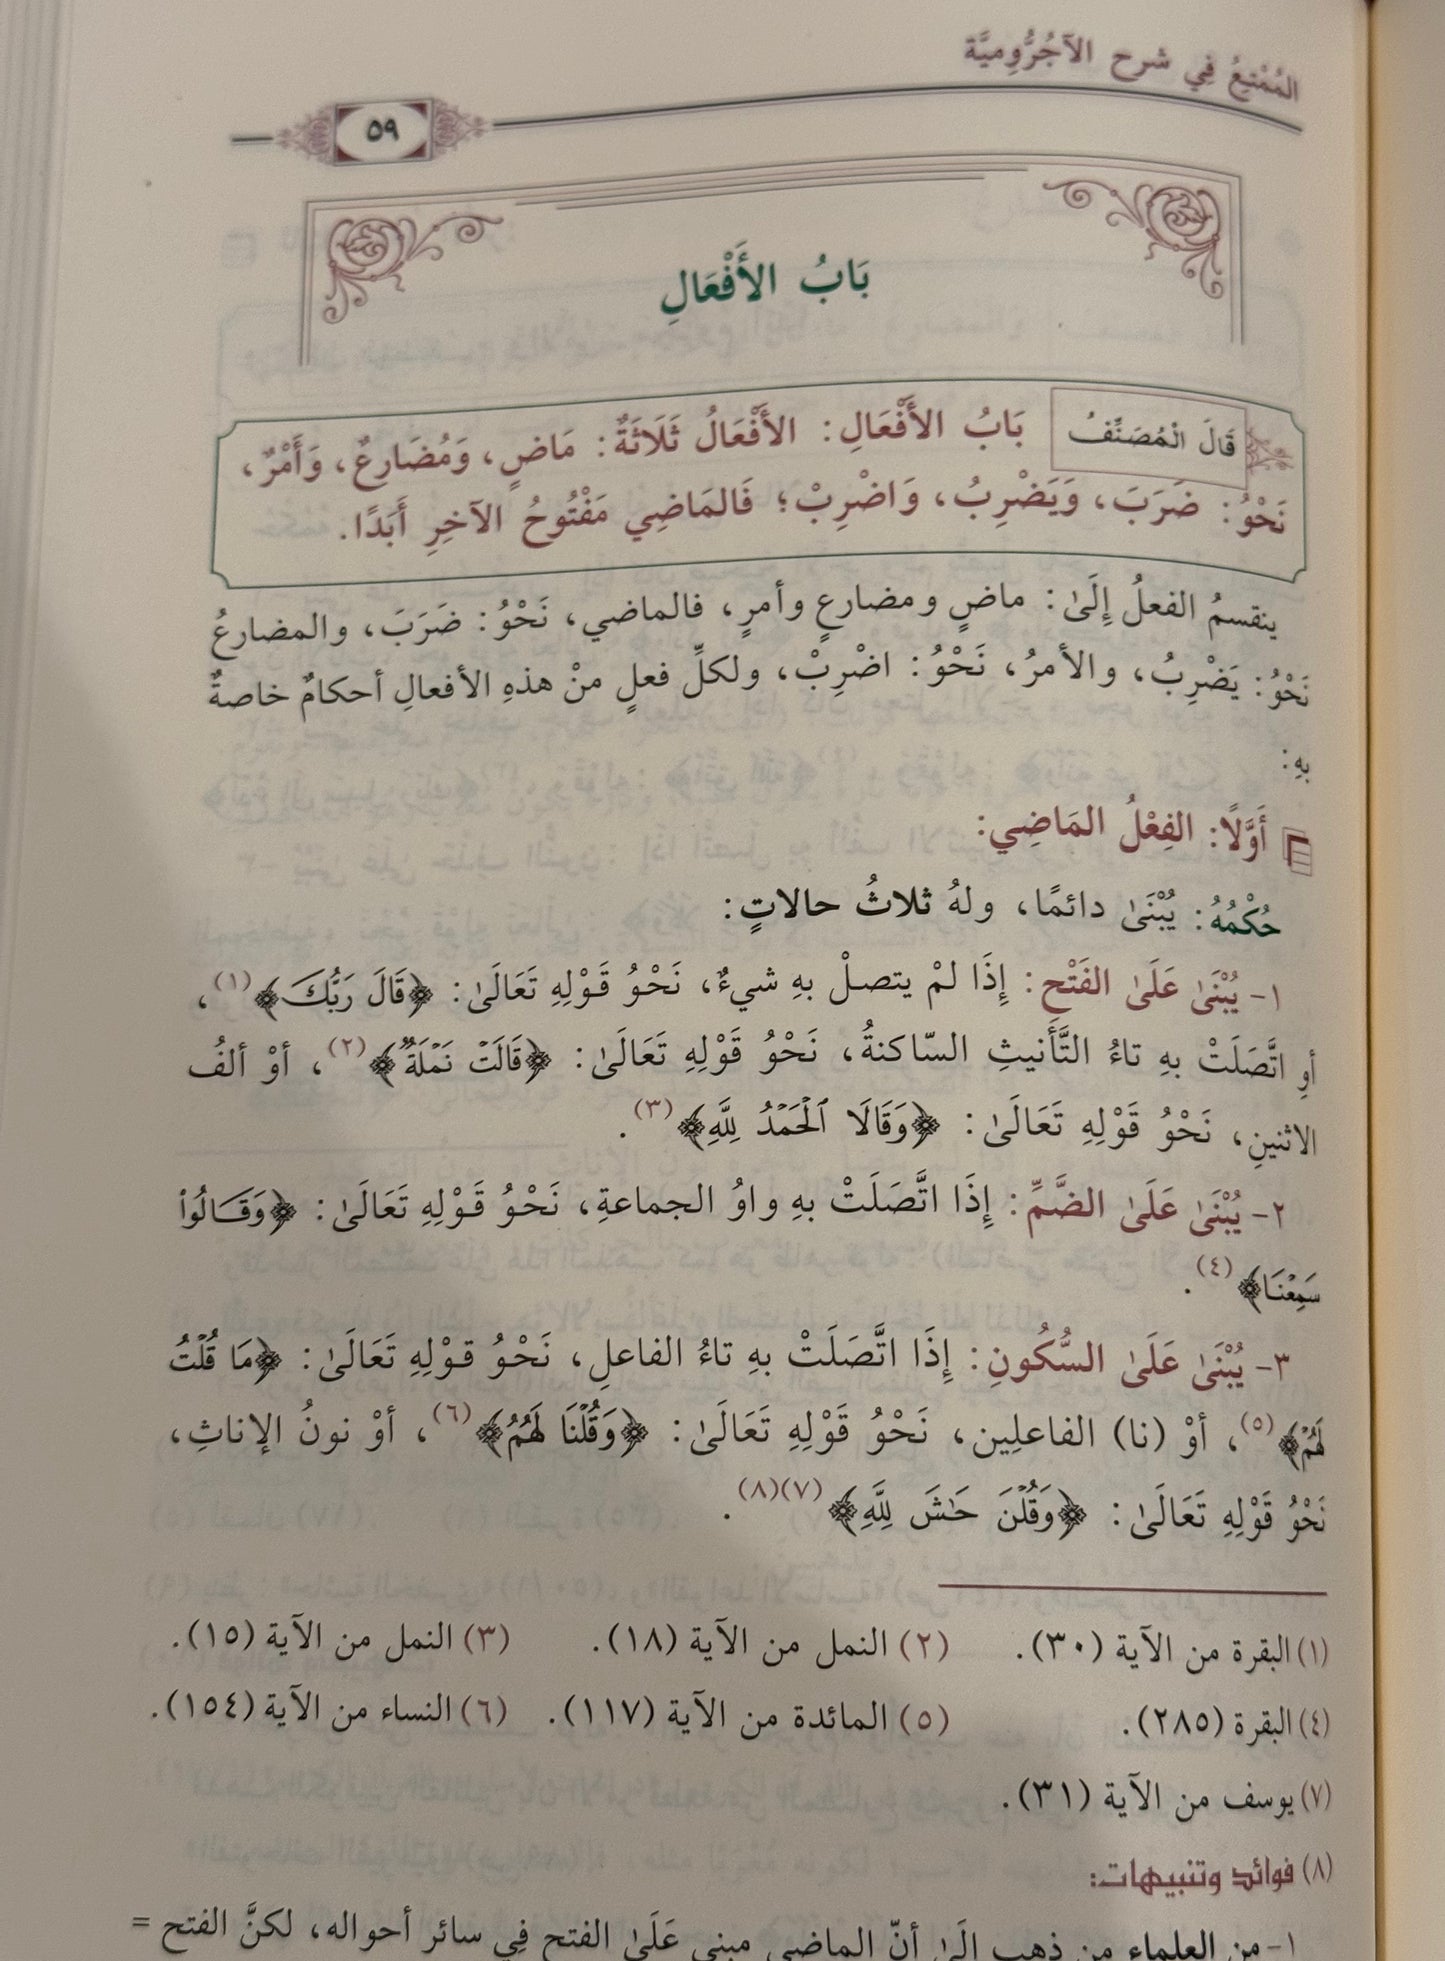 المُمْتِعُ فِي شرح الآجُرُّومِيَّة
٥٩
بَابُ الأَفْعَالِ
قَالَ الْمُصَنِّفُ
بَابُ الأَفْعَالِ: الأَفْعَالُ ثَلَاثَةٌ: مَاضٍ، وَمُضَارِعٌ، وَأَمْرٌ،
نَحْوُ: ضَرَبَ، وَيَضْرِبُ، وَاضْرِبْ؛ فَالمَاضِي مَفْتُوحُ الآخِرِ أَبَدًا.
ينقسمُ الفعلُ إِلَىٰ: ماضٍ ومضارعٍ وأمرٍ، فالماضي، نَحْوُ: ضَرَبَ، والمضارعُ
نَحْوُ: يَضْرِبُ، والأمرُ، نَحْوُ: اضْرِبْ، ولكلِّ فعلٍ منْ هذهِ الأفعالِ أحكامٌ خاصةٌ
بهِ:
أَوَّلًا: الفِعْلُ المَاضِي:
حُكْمُهُ: يُبْنَىٰ دائمًا، ولهُ ثلاثُ حالاتٍ:
١- يُبْنَىٰ عَلَىٰ الفَتْحِ: إِذَا لمْ يتصلْ بهِ شيءٌ، نَحْوُ قَوْلِهِ تَعَالَىٰ: ﴿قَالَ رَبُّكَ﴾(١)،
أوِ اتَّصَلَتْ بهِ تاءُ التَّأنيثِ السّاكنةُ، نَحْوُ قَوْلِهِ تَعَالَىٰ: ﴿قَالَتْ نَمْلَةٌ﴾(٢)، أوْ ألفُ
الاثنينِ، نَحْوُ قَوْلِهِ تَعَالَىٰ: ﴿وَقَالَا ٱلْحَمْدُ لِلَّهِ﴾(٣).
٢- يُبْنَىٰ عَلَىٰ الضَّمِّ: إِذَا اتَّصَلَتْ بهِ واوُ الجماعةِ، نَحْوُ قَوْلِهِ تَعَالَىٰ: ﴿وَقَالُوا۟
سَمِعْنَا﴾(٤).
٣- يُبْنَىٰ عَلَىٰ السُّكُونِ: إِذَا اتَّصَلَتْ بهِ تاءُ الفاعلِ، نَحْوُ قوْلِهِ تَعَالَىٰ: ﴿مَا قُلْتُ
لَهُمْ﴾(٥)، أوْ (نا) الفاعلِين، نَحْوُ قَوْلِهِ تَعَالَىٰ: ﴿وَقُلْنَا لَهُمُ﴾(٦)، أوْ نونُ الإناثِ،
نَحْوُ قَوْلِهِ تَعَالَىٰ: ﴿وَقُلْنَ حَـٰشَ لِلَّهِ﴾(٧)(٨).
(١) البقرة من الآية (٣٠). (٢) النمل من الآية (١٨). (٣) النمل من الآية (١٥).
(٤) البقرة (٢٨٥). (٥) المائدة من الآية (١١٧). (٦) النساء من الآية (١٥٤).
(٧) يوسف من الآية (٣١).
(٨) فوائد وتنبيهات:
١- من العلماء من ذهب إِلَىٰ أنّ الماضي مبني عَلَىٰ الفتح فِي سائر أحواله، لكنَّ الفتح =